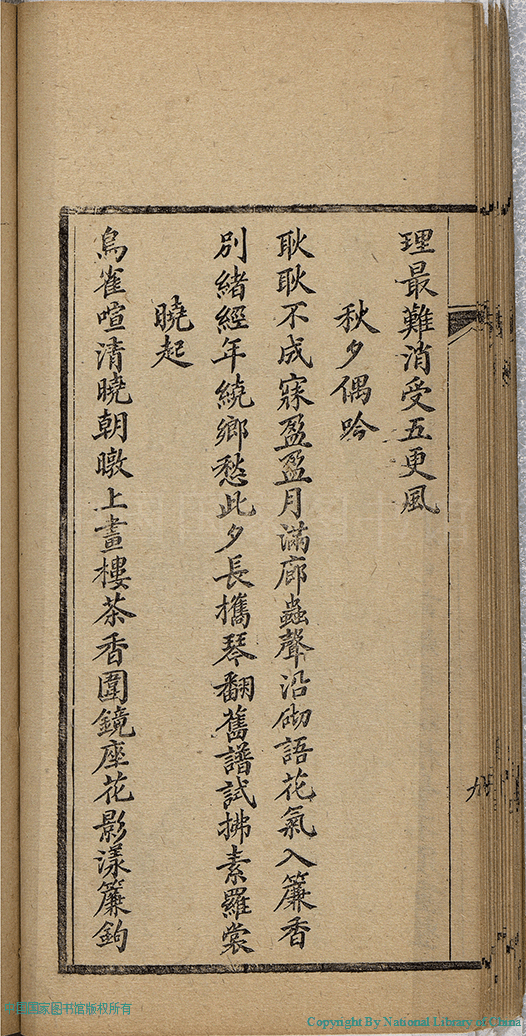 理最難消受五更風
秋夕偶吟
耿耿不成寐盈盈月滿廊蟲聲沿砌語花氣入簾香
別緒經年繞鄉愁此夕長攜琴翻舊譜試拂素羅裳
曉起
烏雀喧清曉朝暾上畫樓茶香圍鏡座花影漾簾鉤
中国国家图书馆版权所有
Copyright By National Library of China